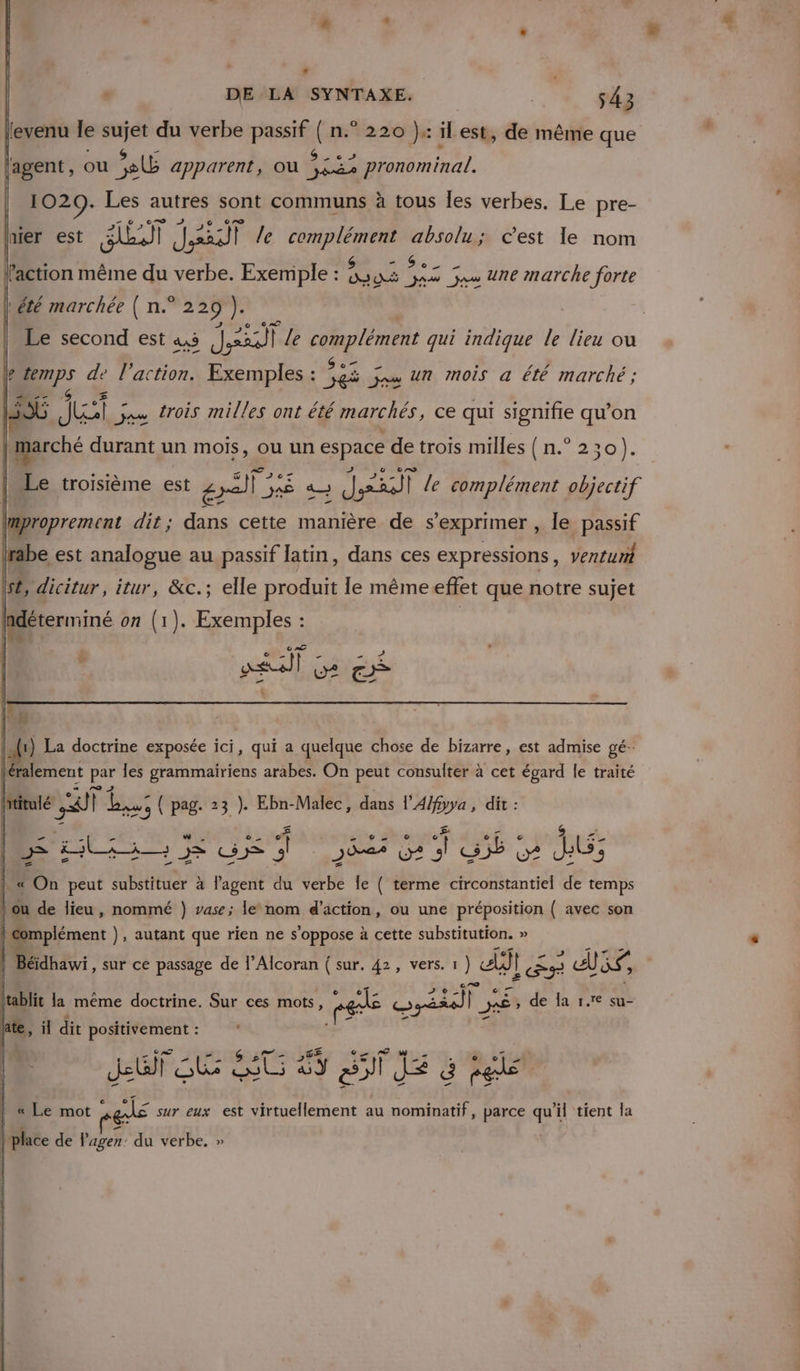 DE LA SYNTAXE. 543
levenu le sujet du verbe passif ( n.° 220 ): il est, de même que
l'agent, ou ظَاهِرٌ apparent, ou مُضْمَرٌ pronominal.
1029. Les autres sont communs à tous les verbes. Le pre-
mier est ٱلْمَفْعُولُ ٱلْمُطْلَقُ le complément absolu; c'est le nom
l'action même du verbe. Exemple : سِيرَ سَيْرٌ شَدِيدٌ une marche forte
été marchée ( n.° 229 ).
Le second est ٱلْمَفْعُولُ فِيهِ le complément qui indique le lieu ou
le temps de l'action. Exemples : سِيرَ شَهْرٌ un mois a été marché ;
سِيرَ أَمْيَالٌ ثَلَاثَةٌ trois milles ont été marchés, ce qui signifie qu'on
marché durant un mois, ou un espace de trois milles ( n.° 230).
Le troisième est ٱلْمَفْعُولُ بِهِ غَيْرُ ٱلصَّرِيحِ le complément objectif
mproprement dit ; dans cette manière de s'exprimer, le passif
rabe est analogue au passif latin, dans ces expressions, ventum
st, dicitur, itur, &c.; elle produit le même effet que notre sujet
ndéterminé on (1). Exemples :
خُرِجَ مِنَ
(1) La doctrine exposée ici, qui a quelque chose de bizarre, est admise gé-
éralement par les grammairiens arabes. On peut consulter à cet égard le traité
ntitulé ( pag. 23 ). Ebn-Malec, dans l'Alfiyya, dit :
وَقَابِلٌ مِنْ ظَرْفٍ أَوْ مِنْ مَصْدَرِ أَوْ حَرْفِ جَرٍّ بِنِيَابَةٍ حَرِ
« On peut substituer à l'agent du verbe le ( terme circonstantiel de temps
ou de lieu, nommé ) vase; le nom d'action, ou une préposition ( avec son
complément ), autant que rien ne s'oppose à cette substitution. »
Béidhawi, sur ce passage de l'Alcoran ( sur. 42, vers. 1 ) كَذٰلِكَ يُوحَى إِلَيْكَ,
tablit la même doctrine. Sur ces mots, غَيْرِ ٱلْمَغْضُوبِ عَلَيْهِمْ, de la 1.re su-
ate, il dit positivement :
عَلَيْهِمْ فِى مَحَلِّ ٱلرَّفْعِ لِأَنَّهُ نَائِبٌ مَنَابَ ٱلْفَاعِلِ
« Le mot عَلَيْهِمْ sur eux est virtuellement au nominatif, parce qu'il tient la
place de l'agent du verbe. »